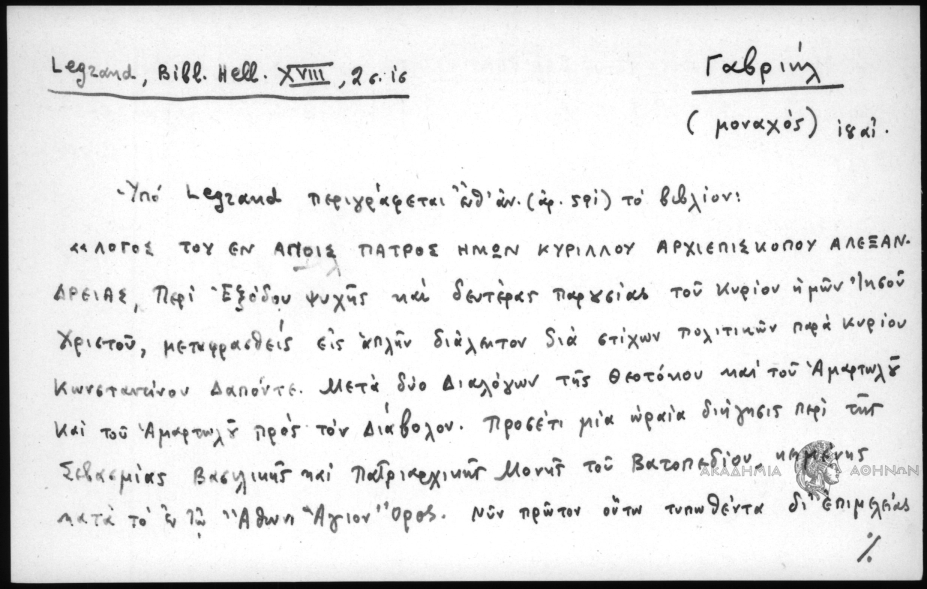 Legrand, Bibl. Hell. XVIII, 2 σ. 16
Γαβριήλ
(μοναχός) ιθ αἰ.
Ὑπό Legrand περιγράφεται ἐνθ' ἀν. (ἀρ. 591) τό βιβλίον:
«ΛΟΓΟΣ ΤΟΥ ΕΝ ΑΓΙΟΙΣ ΠΑΤΡΟΣ ΗΜΩΝ ΚΥΡΙΛΛΟΥ ΑΡΧΙΕΠΙΣΚΟΠΟΥ ΑΛΕΞΑΝ-
ΔΡΕΙΑΣ, Περί Ἐξόδου ψυχῆς καί δευτέρας παρουσίας τοῦ Κυρίου ἡμῶν Ἰησοῦ
Χριστοῦ, μεταφρασθείς εἰς ἁπλῆν διάλεκτον διά στίχων πολιτικῶν παρά Κυρίου
Κωνσταντίνου Δαπόντε. Μετά δύο Διαλόγων τῆς Θεοτόκου καί τοῦ Ἁμαρτωλοῦ
καί τοῦ Ἁμαρτωλοῦ πρός τόν Διάβολον. Προσέτι μία ὡραία διήγησις περί τῆς
Σεβασμίας Βασιλικῆς καί Πατριαρχικῆς Μονῆς τοῦ Βατοπεδίου, κημένης
κατά τό ἐν τῷ Ἄθωνι Ἅγιον Ὄρος. Νῦν πρῶτον οὕτω τυπωθέντα δι' ἐπιμελείας
%
ΑΚΑΔΗΜΙΑ ΑΘΗΝΩΝ